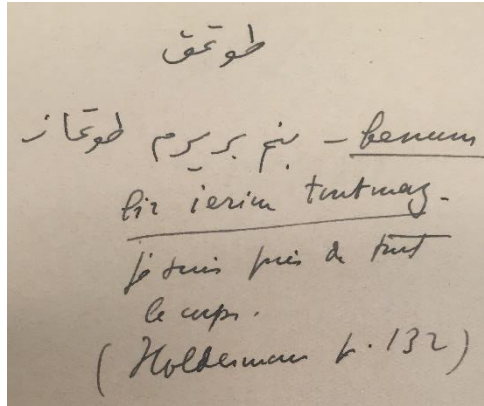 طوتمق
بنم بر يرم طوتماز – benum
bir ierim tutmaz.
je suis pris de tout
le corps.
(Holderman p. 132)